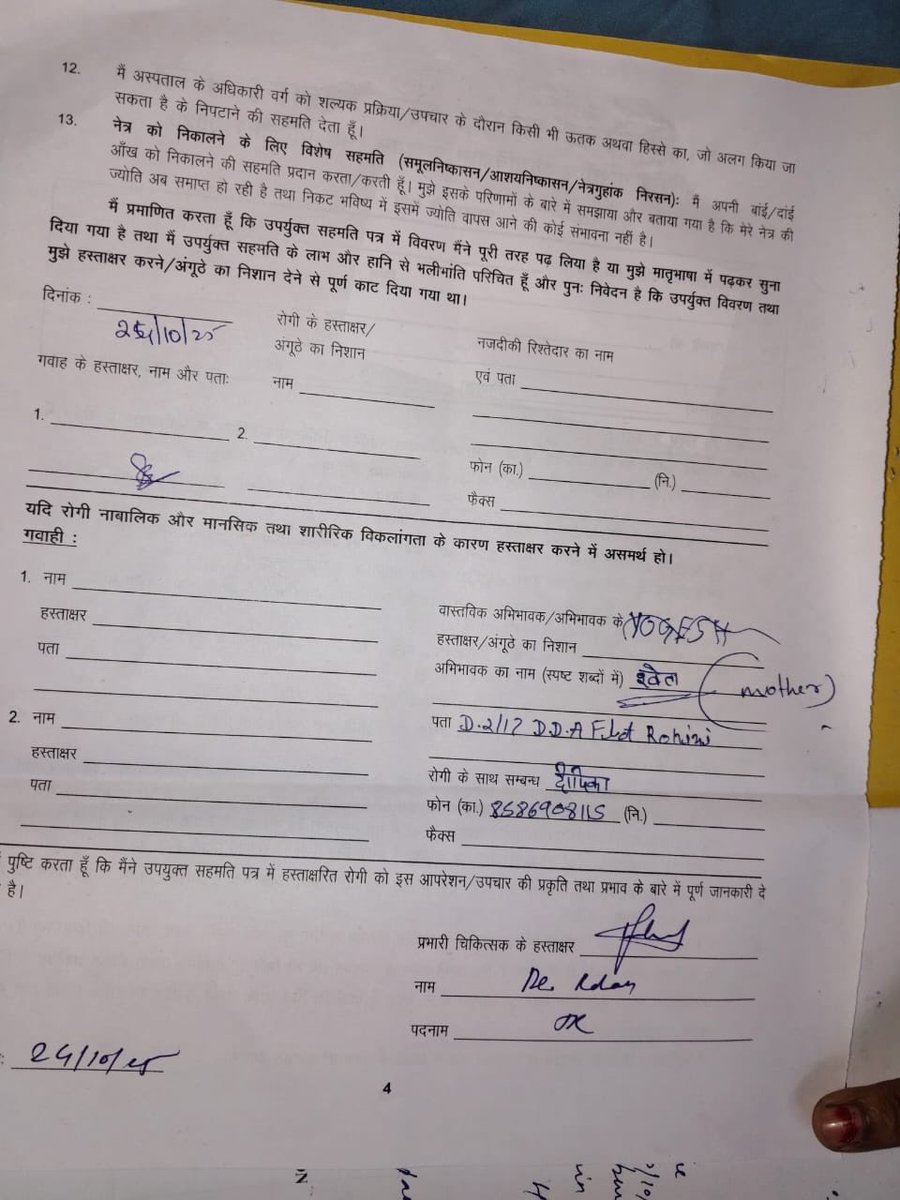 12. मैं अस्पताल के अधिकारी वर्ग को शल्यक प्रक्रिया/उपचार के दौरान किसी भी ऊतक अथवा हिस्से का, जो अलग किया जा
सकता है के निपटाने की सहमति देता हूँ।
13. नेत्र को निकालने के लिए विशेष सहमति (समूलनिष्कासन/आशयनिष्कासन/नेत्रगुहांक निरसन): मैं अपनी बांई/दांई
आँख को निकालने की सहमति प्रदान करता/करती हूँ। मुझे इसके परिणामों के बारे में समझाया और बताया गया है कि मेरे नेत्र की
ज्योति अब समाप्त हो रही है तथा निकट भविष्य में इसमें ज्योति वापस आने की कोई संभावना नहीं है।
मैं प्रमाणित करता हूँ कि उपर्युक्त सहमति पत्र में विवरण मैंने पूरी तरह पढ़ लिया है या मुझे मातृभाषा में पढ़कर सुना
दिया गया है तथा मैं उपर्युक्त सहमति के लाभ और हानि से भलीभांति परिचित हूँ और पुनः निवेदन है कि उपर्युक्त विवरण तथा
मुझे हस्ताक्षर करने/अंगूठे का निशान देने से पूर्ण काट दिया गया था।
दिनांक : रोगी के हस्ताक्षर/ नजदीकी रिश्तेदार का नाम
/10/25 अंगूठे का निशान
गवाह के हस्ताक्षर, नाम और पताः नाम एवं पता
1. 2.
फोन (का.) (नि.)
फैक्स
यदि रोगी नाबालिक और मानसिक तथा शारीरिक विकलांगता के कारण हस्ताक्षर करने में असमर्थ हो।
गवाही :
1. नाम
हस्ताक्षर
पता
2. नाम
हस्ताक्षर
पता
वास्तविक अभिभावक/अभिभावक के YOGESH
हस्ताक्षर/अंगूठे का निशान
अभिभावक का नाम (स्पष्ट शब्दों में) श्वेता (mother)
पता D.2/17 D.D.A Flat Rohini
रोगी के साथ सम्बन्ध दीपिका
फोन (का.) 8586908115 (नि.)
फैक्स
पुष्टि करता हूँ कि मैंने उपयुक्त सहमति पत्र में हस्ताक्षरित रोगी को इस आपरेशन/उपचार की प्रकृति तथा प्रभाव के बारे में पूर्ण जानकारी दे
है।
प्रभारी चिकित्सक के हस्ताक्षर
नाम
पदनाम
24/10/25
4